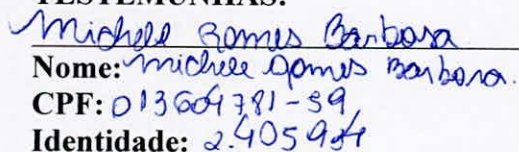 TESTEMUNHAS:
Michele Gomes Barbosa
Nome: Michele Gomes Barbosa.
CPF: 013604781-39
Identidade: 2.405934